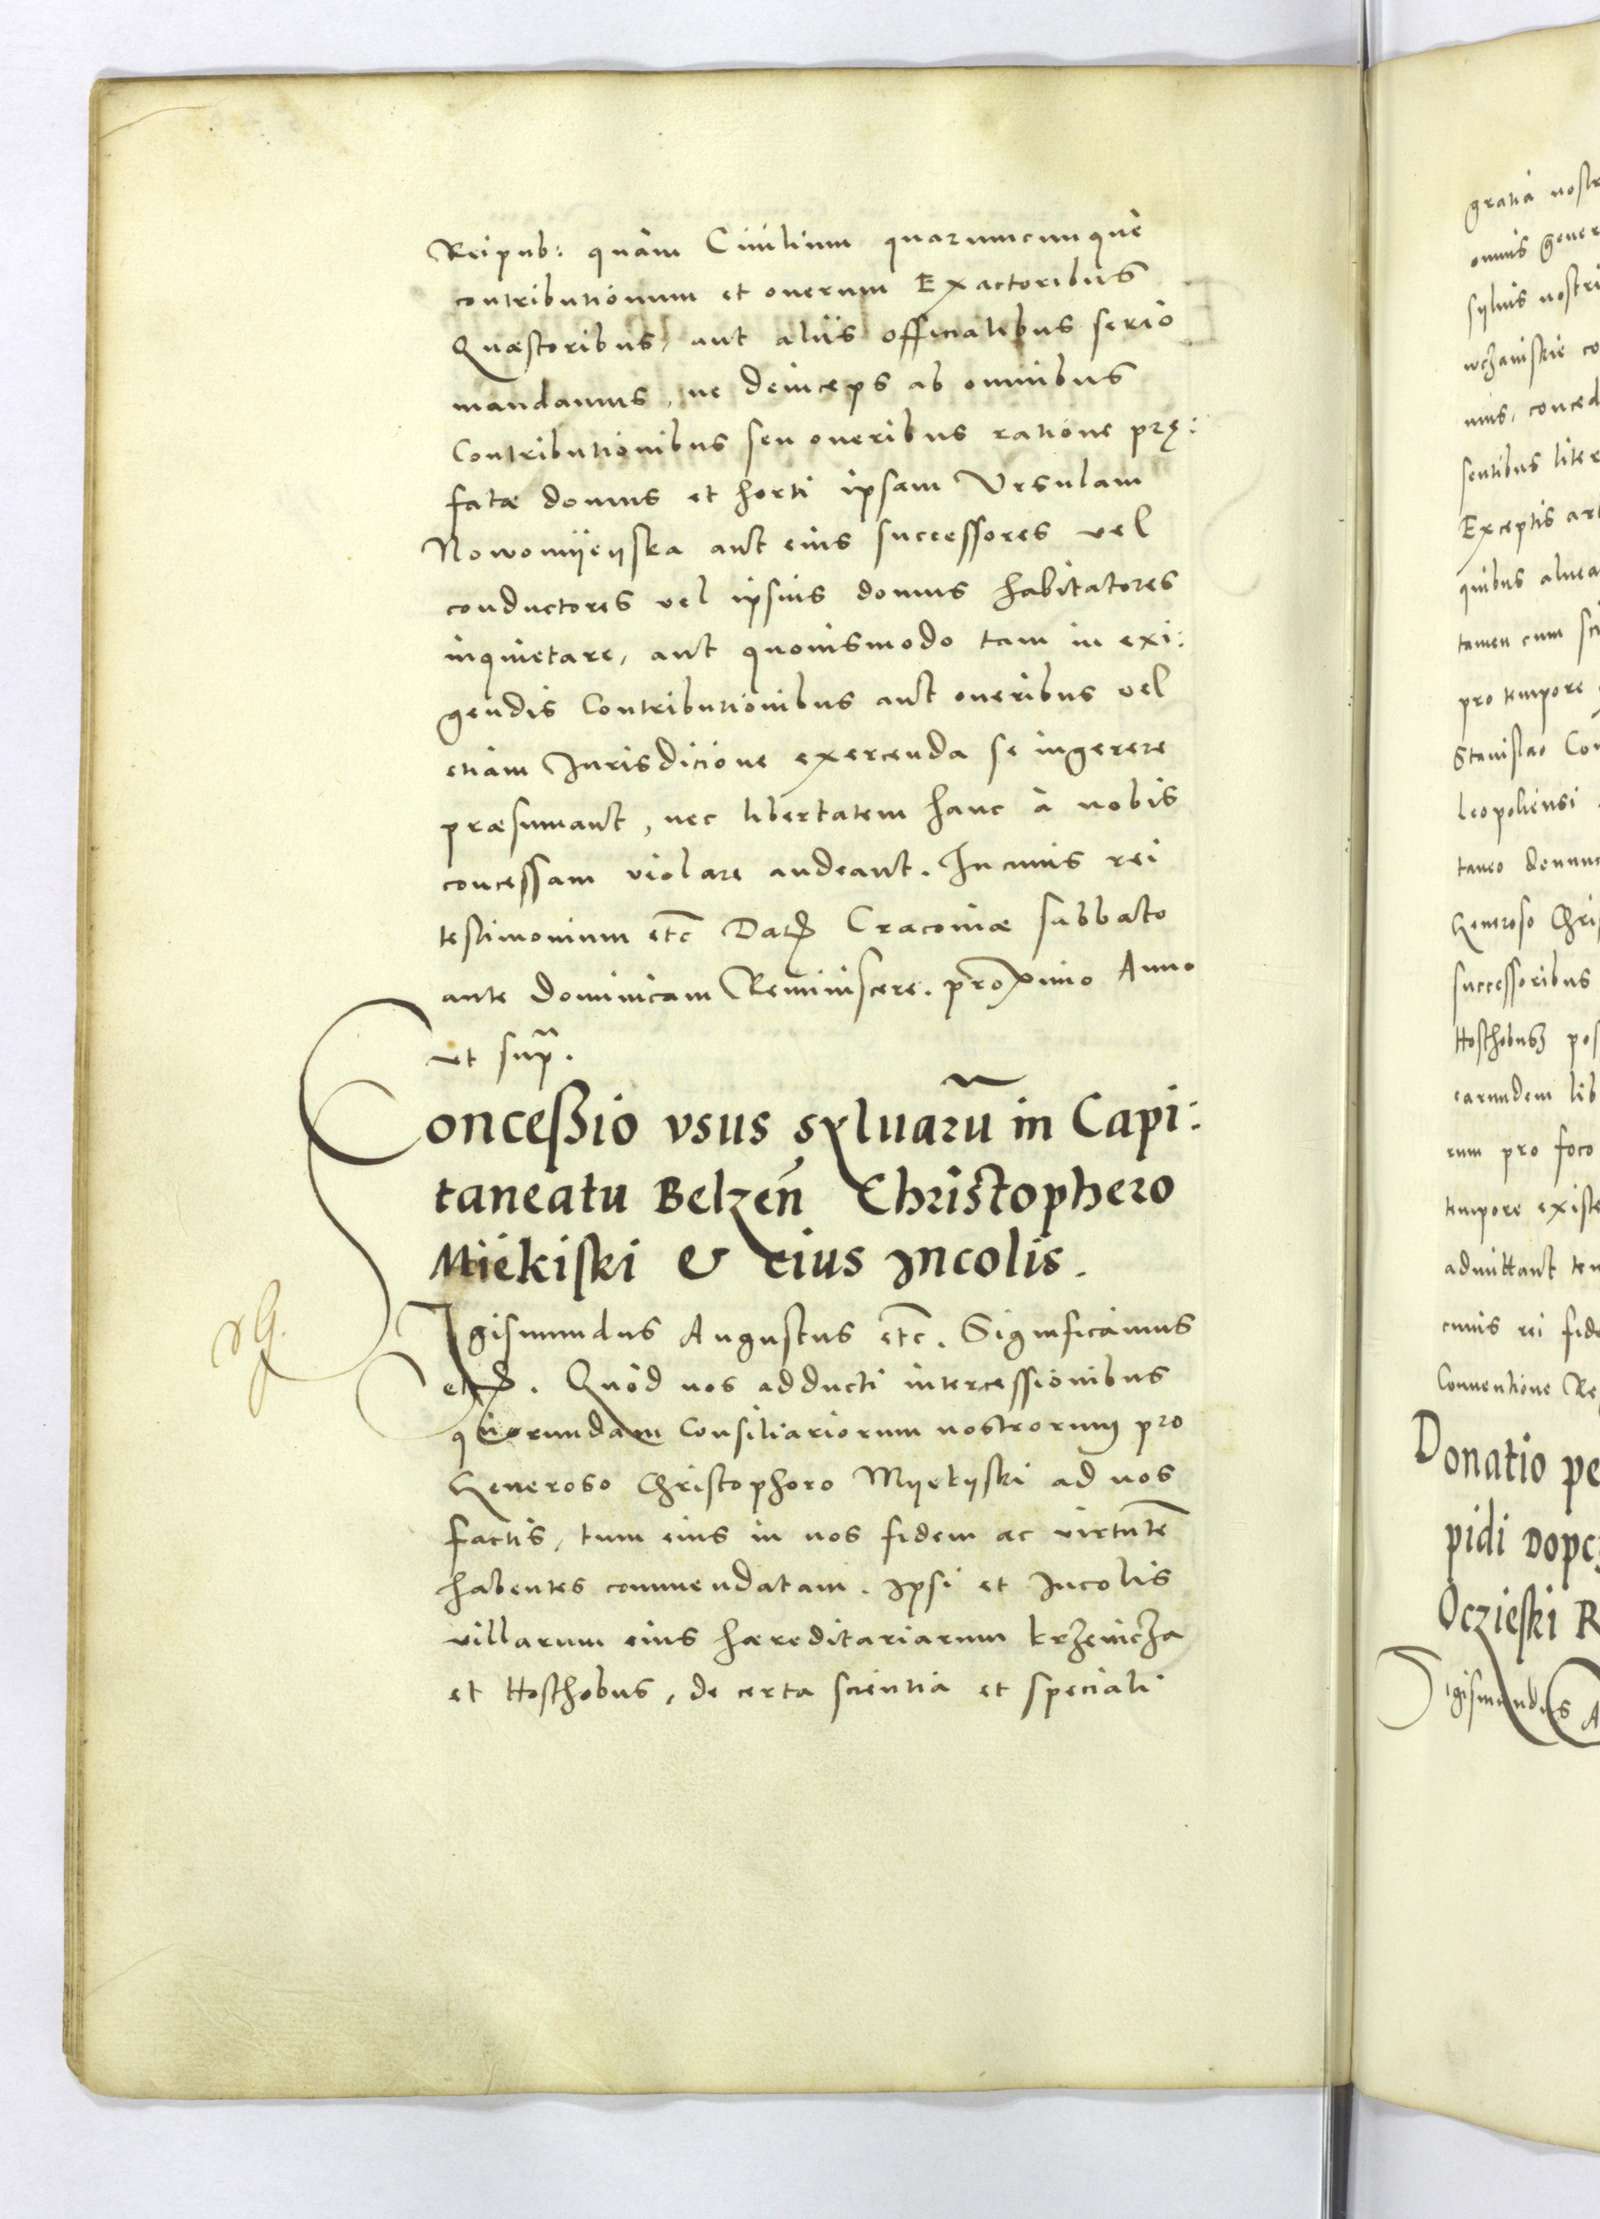 Reipub: quàm Ciuilium quarumcunque
contributionum et onerum Exactoribus
Quæstoribus, aut alijs officialibus serio
mandamus, ne deinceps ab omnibus
Contributionibus seu oneribus ratione prę:
fatæ domus et horti ipsam Vrsulam
Nowomijeijska aut eius successores vel
conductores vel ipsius domus habitatores
inquietare, aut quouismodo tam in exi:
gendis Contributionibus aut oneribus vel
etiam Jurisdicione exercenda se ingerere
præsumant, nec libertatem hanc à nobis
concessam violare audeant. In cuius rei
testimonium etc Dat Cracouiæ sabbato
ante dominicam Reminiscere. proximo Anno
vt sup.
Conceßio vsus syluarū in Capi:
taneatu Belzen̄ Christophero
Miëkiski & eius Incolis.
Sigismundus Augustus etc. Significamus
etc. Quòd nos adducti intercessionibus
quorundam Consiliariorum nostrorum pro
Generoso Christophoro Mijekijski ad nos
factis, tum eius in nos fidem ac virtutē
habentes commendatam. Ipsi et Incolis
villarum eius hæreditariarum krzeincza
et Hosthobus, de certa scientia et speciali
gratia
omnis
syluis
sentibus
Exceptis
quibus
tamen cum
pro tempore
Stanislao
leopoliensi
taneo
Generoso
successoribus
earundem
rum pro foco
tempore
admittant
cuius rei
Conuentione
Donatio
pidi
Oczieski
Sigismundus